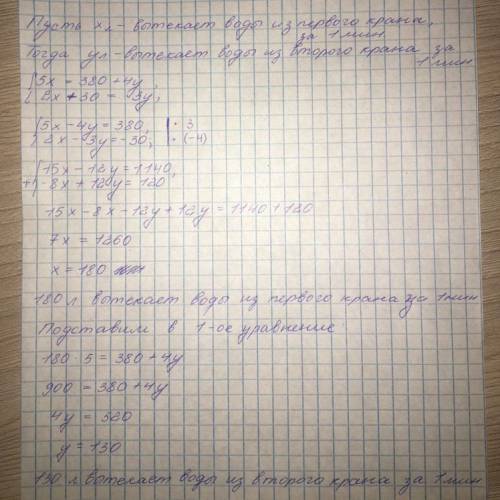 Пусть х л - вытекает воды из первого крана,
за 1 мин
Тогда у л - вытекает воды из второго крана за
1 мин
5x = 380 + 4y,
2x + 30 = 3y;
5x - 4y = 380, | · 3
2x - 3y = -30; | · (-4)
15x - 12y = 1140,
+ - 8x + 12y = 120
15x - 8x - 12y + 12y = 1140 + 120
7x = 1260
x = 180
180 л вытекает воды из первого крана за 1 мин
Подставим в 1-ое уравнение
180 · 5 = 380 + 4y
900 = 380 + 4y
4y = 520
y = 130
130 л вытекает воды из второго крана за 1 мин